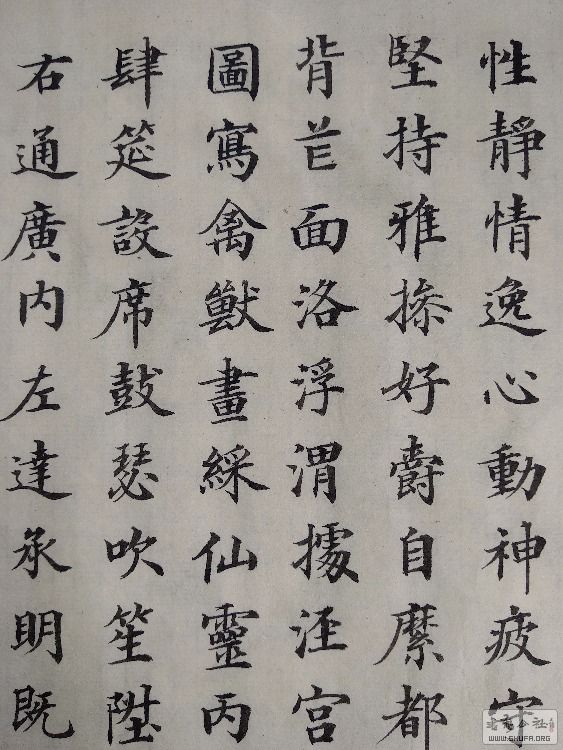 性靜情逸心動神疲守
堅持雅操好爵自縻都
背芒面洛浮渭據涇宮
圖寫禽獸畫綵仙靈丙
肆筵設席鼓瑟吹笙陞
右通廣内左達承明既
WWW.SHUFA.ORG